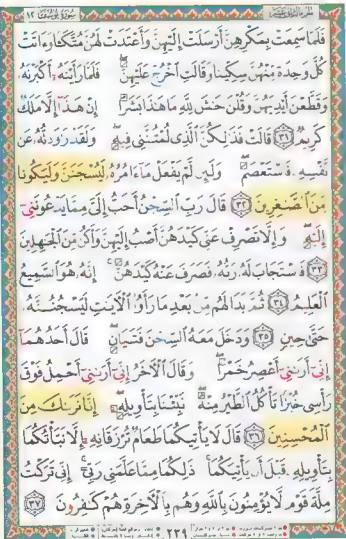 فَلَمَّا سَمِعَتْ بِمَكْرِهِنَّ أَرْسَلَتْ إِلَيْهِنَّ وَأَعْتَدَتْ لَهُنَّ مُتَّكَـًٔا وَءَاتَتْ
كُلَّ وَٰحِدَةٍ مِّنْهُنَّ سِكِّينًا وَقَالَتِ ٱخْرُجْ عَلَيْهِنَّ فَلَمَّا رَأَيْنَهُۥٓ أَكْبَرْنَهُۥ
وَقَطَّعْنَ أَيْدِيَهُنَّ وَقُلْنَ حَٰشَ لِلَّهِ مَا هَٰذَا بَشَرًا إِنْ هَٰذَآ إِلَّا مَلَكٌ
كَرِيمٌ ٣١ قَالَتْ فَذَٰلِكُنَّ ٱلَّذِى لُمْتُنَّنِى فِيهِ وَلَقَدْ رَٰوَدتُّهُۥ عَن
نَّفْسِهِۦ فَٱسْتَعْصَمَ وَلَئِن لَّمْ يَفْعَلْ مَآ ءَامُرُهُۥ لَيُسْجَنَنَّ وَلَيَكُونًا
مِّنَ ٱلصَّٰغِرِينَ ٣٢ قَالَ رَبِّ ٱلسِّجْنُ أَحَبُّ إِلَىَّ مِمَّا يَدْعُونَنِىٓ
إِلَيْهِ وَإِلَّا تَصْرِفْ عَنِّى كَيْدَهُنَّ أَصْبُ إِلَيْهِنَّ وَأَكُن مِّنَ ٱلْجَٰهِلِينَ
٣٣ فَٱسْتَجَابَ لَهُۥ رَبُّهُۥ فَصَرَفَ عَنْهُ كَيْدَهُنَّ إِنَّهُۥ هُوَ ٱلسَّمِيعُ
ٱلْعَلِيمُ ٣٤ ثُمَّ بَدَا لَهُم مِّنۢ بَعْدِ مَا رَأَوُا۟ ٱلْءَايَٰتِ لَيَسْجُنُنَّهُۥ
حَتَّىٰ حِينٍ ٣٥ وَدَخَلَ مَعَهُ ٱلسِّجْنَ فَتَيَانِ قَالَ أَحَدُهُمَآ
إِنِّىٓ أَرَىٰنِىٓ أَعْصِرُ خَمْرًا وَقَالَ ٱلْءَاخَرُ إِنِّىٓ أَرَىٰنِىٓ أَحْمِلُ فَوْقَ
رَأْسِى خُبْزًا تَأْكُلُ ٱلطَّيْرُ مِنْهُ نَبِّئْنَا بِتَأْوِيلِهِۦٓ إِنَّا نَرَىٰكَ مِنَ
ٱلْمُحْسِنِينَ ٣٦ قَالَ لَا يَأْتِيكُمَا طَعَامٌ تُرْزَقَانِهِۦٓ إِلَّا نَبَّأْتُكُمَا
بِتَأْوِيلِهِۦ قَبْلَ أَن يَأْتِيَكُمَا ذَٰلِكُمَا مِمَّا عَلَّمَنِى رَبِّىٓ إِنِّى تَرَكْتُ
مِلَّةَ قَوْمٍ لَّا يُؤْمِنُونَ بِٱللَّهِ وَهُم بِٱلْءَاخِرَةِ هُمْ كَٰفِرُونَ ٣٧
٢٣٩